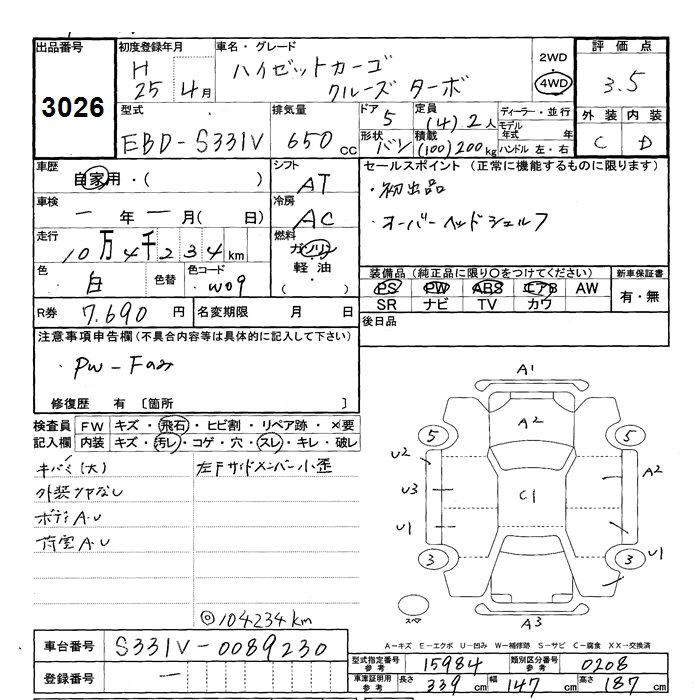 出品番号 初度登録年月 車名・グレード 評価点
3026 H 25 4月 ハイゼットカーゴ クルーズ ターボ 2WD 4WD 3.5
型式 排気量 ドア 5 定員 (4) 2人 ディーラー・並行 外装 内装
EBD-S331V 650cc 形状 バン 積載 (100) 200kg モデル年式 年 ハンドル 左・右 C D
車歴 自家用・( ) シフト AT セールスポイント (正常に機能するものに限ります)
・初出品
車検 一 年 一 月( 日) 冷房 AC
・オーバーヘッドシェルフ
走行 10万4千234km 燃料 ガソリン 軽油 ( )
色 白 色替 色コード W09
装備品 (純正品に限り○をつけてください) 新車保証書
PS PW ABS エアB AW 有・無
SR ナビ TV カワ
R券 7,690円 名変期限 月 日 後日品
注意事項申告欄 (不具合内容等は具体的に記入して下さい)
・PW-Fのみ
修復歴 有 [箇所 ]
検査員 FW キズ・飛石・ヒビ割・リペア跡・×要
記入欄 内装 キズ・汚レ・コゲ・穴・スレ・キレ・破レ
キバミ(大) 左Fサイドメンバー小歪
外装ツヤなし
ボディA.U
荷室A.U
◎104234km
A1
A2
5 5
U2 A2
U3 C1
U1
3 3 U1
スペア A3
A-キズ E-エクボ U-凹み W-補修跡 S-サビ C-腐食 XX-交換済
車台番号 S331V-0089230
型式指定番号 参考 15984 類別区分番号 参考 0208
登録番号 一
車庫証明用 参考 長さ 339cm 幅 147cm 高さ 187cm